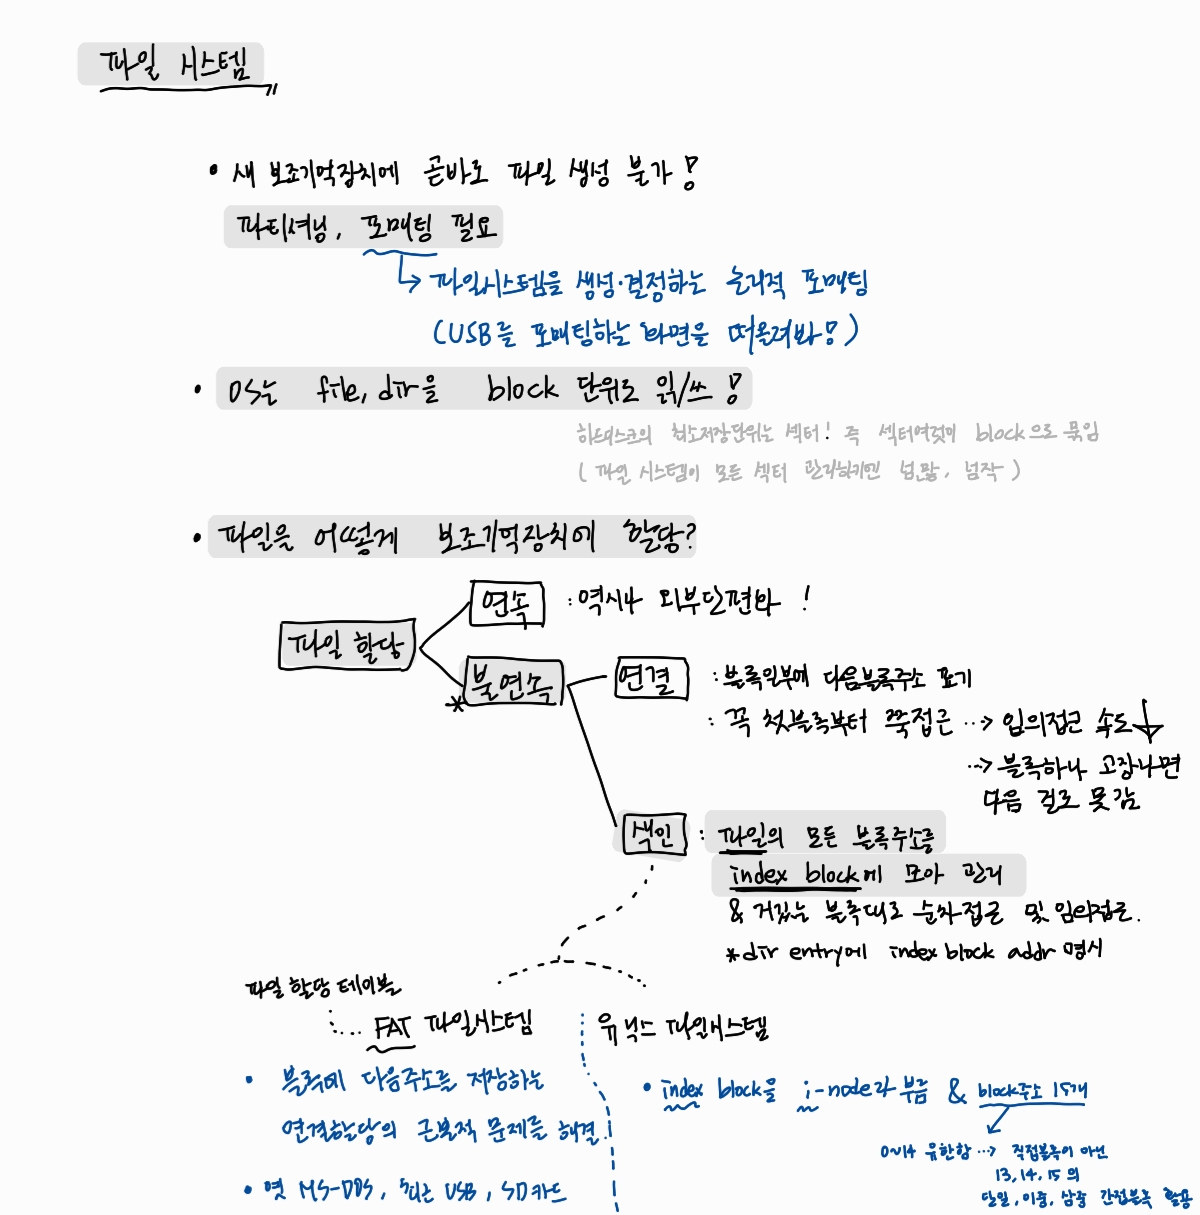 파일 시스템
• 새 보조기억장치에 곧바로 파일 생성 불가!
파티셔닝, 포매팅 필요
↳ 파일시스템을 생성·결정하는 논리적 포매팅
(USB를 포매팅하는 화면을 떠올려봐!)
• OS는 file, dir을 block 단위로 읽/쓰!
하드디스크의 최소저장단위는 섹터! 즉 섹터여럿이 block으로 묶임
(파일 시스템이 모든 섹터 관리하기엔 넘많, 넘작)
• 파일을 어떻게 보조기억장치에 할당?
연속 : 역시나 외부단편화!
파일 할당
*불연속
연결 : 블록일부에 다음블록주소 표기
: 꼭 첫블록부터 쭉접근 ⇢ 임의접근 속도↓
⇢ 블록하나 고장나면
다음 걸로 못감
색인 : 파일의 모든 블록주소를
index block에 모아 관리
& 거깄는 블록대로 순차접근 및 임의접근.
*dir entry에 index block addr 명시
파일 할당 테이블
FAT 파일시스템
유닉스 파일시스템
• 블록에 다음주소를 저장하는
연결할당의 근본적 문제를 해결.
• 옛 MS-DOS, 최근 USB, SD카드
• index block을 i-node라 부름 & block주소 15개
0~14 유한함 ⇢ 직접블록이 아닌
13, 14, 15 의
단일, 이중, 삼중 간접블록 활용